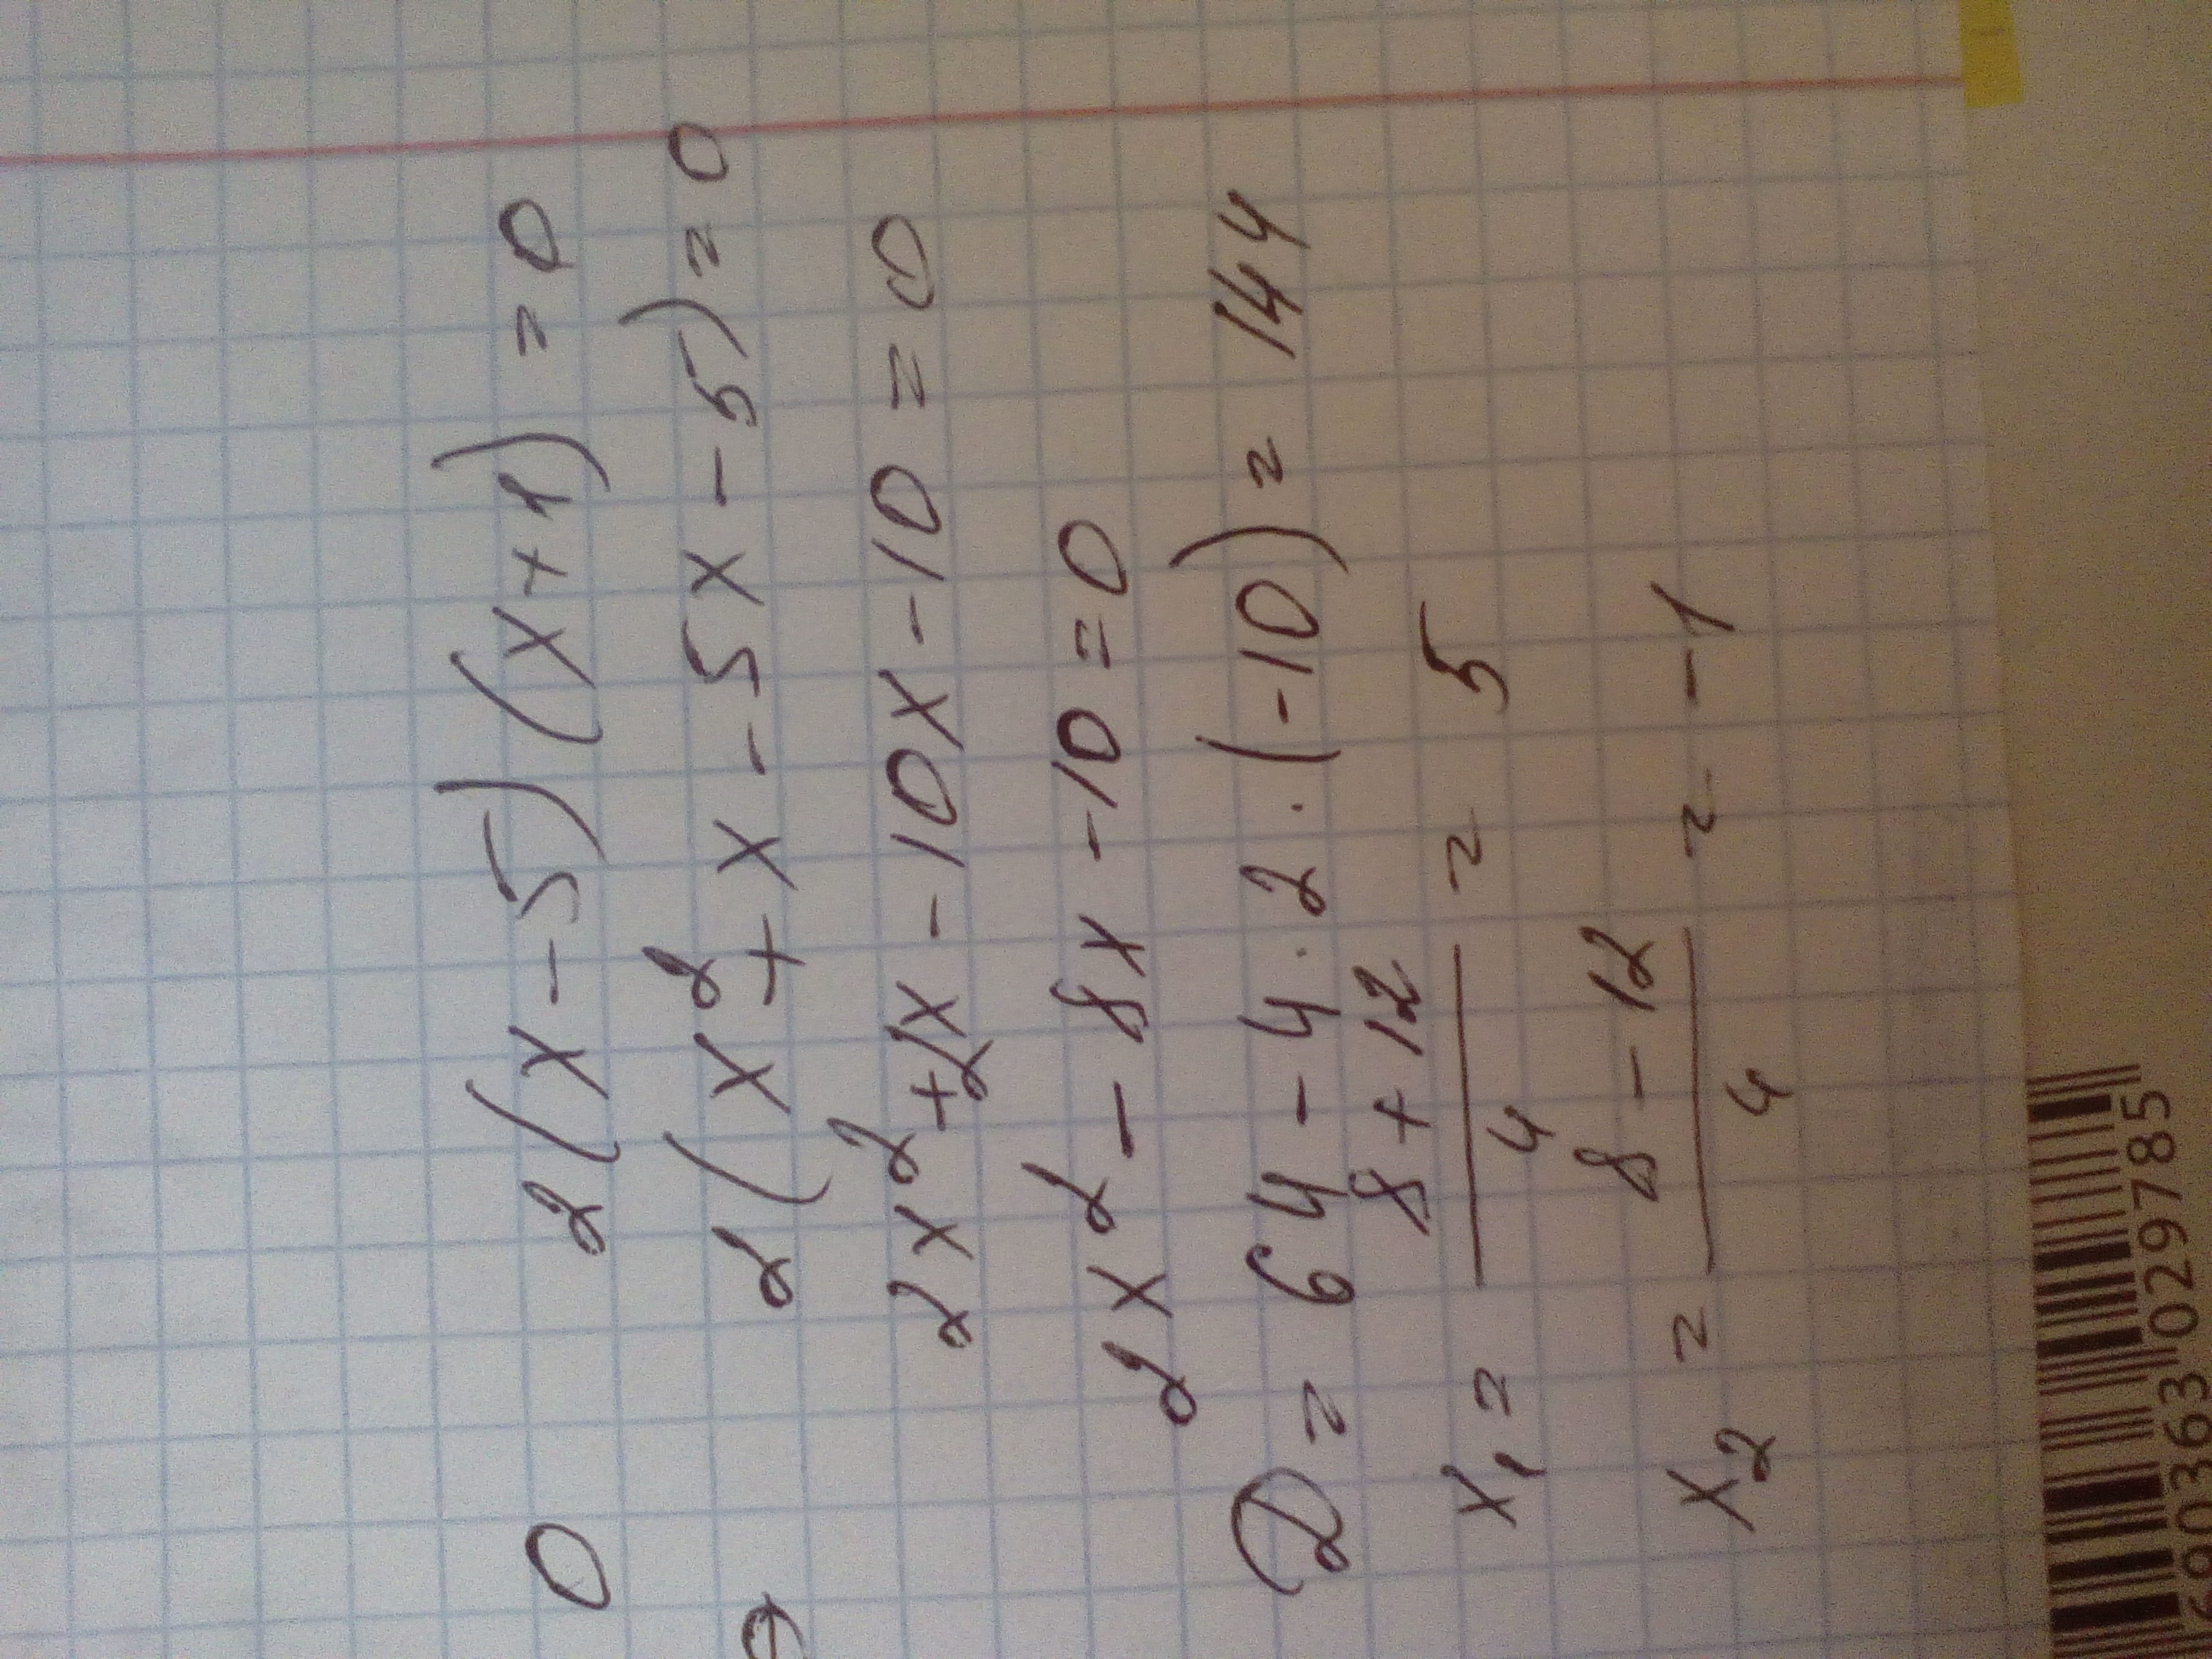 0 2(x-5)(x+1)=0
2(x²+x-5x-5)=0
2x²+2x-10x-10=0
2x²-8x-10=0
D=64-4·2·(-10)=144
x₁= (8+12)/4 = 5
x₂= (8-12)/4 = -1
690363 029785